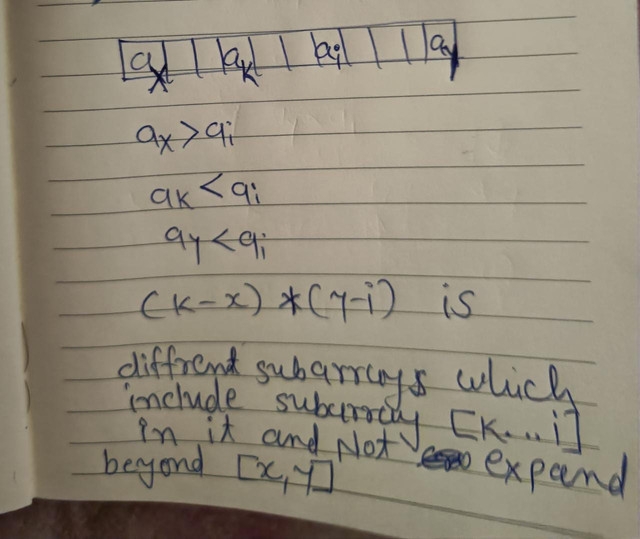 ax ak ai ay
ax > ai
ak < ai
ay < ai
(k-x) * (y-i) is
diffrent subarrays which
include subarray [k...i]
in it and Not expand
beyond [x,y]